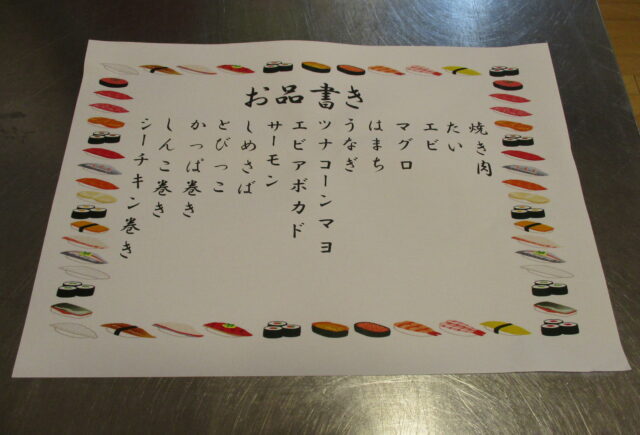 お品書き
焼き肉
たい
エビ
マグロ
はまち
うなぎ
ツナコーンマヨ
エビアボカド
サーモン
しめさば
とびっこ
かっぱ巻き
しんこ巻き
シーチキン巻き